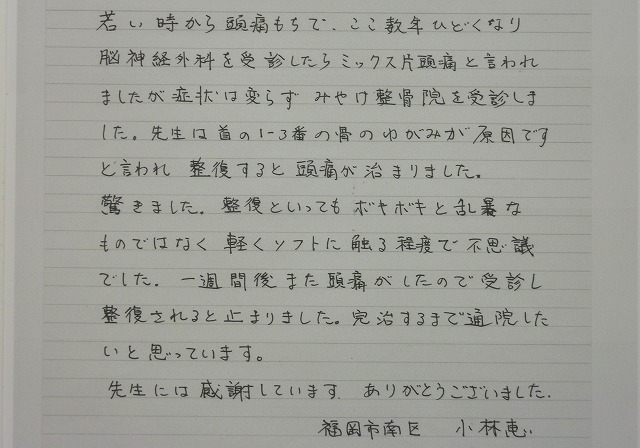 若い時から頭痛もちで、ここ数年ひどくなり
脳神経外科を受診したらミックス片頭痛と言われ
ましたが症状は変らず みやけ整骨院を受診しま
した。先生は首の1-3番の骨のゆがみが原因です
と言われ 整復すると頭痛が治まりました。
驚きました。整復といってもボキボキと乱暴な
ものではなく 軽くソフトに触る程度で不思議
でした。一週間後また頭痛がしたので受診し
整復されると止まりました。完治するまで通院した
いと思っています。
先生には感謝しています。ありがとうございました。
福岡市南区 小林恵